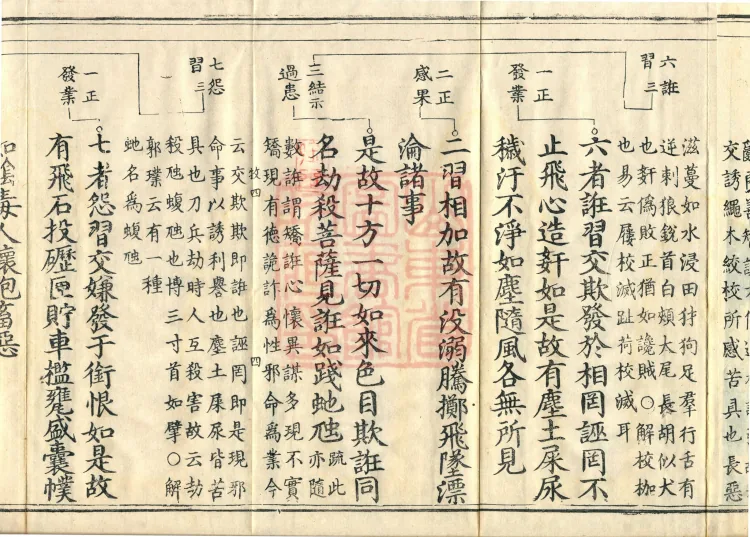 交誘繩木絞校所感苦具也長惡
六誑
習三
滋蔓如水浸田犴狗足羣行舌有
逆刺狼銳首白頰大尾長胡似犬
也姧偽敗正猶如讒賊○解校枷
也易云屨校滅趾荷校滅耳
一正
發業
六者誑習交欺發於相罔誣罔不
止飛心造姧如是故有塵土屎尿
穢汙不淨如塵隨風各無所見
二正
感果
二習相加故有没溺騰擲飛墜漂
淪諸事
三結示
過患
是故十方一切如來色目欺誑同
名劫殺菩薩見誑如踐虵虺疏此
亦隨
數誑謂矯誑心懷異謀多現不實
矯現有德詭詐為性邪命為業今
牧四
四
云交欺欺即誑也誣罔即是現邪
命事以誘利譽也塵土屎尿皆苦
具也刀兵劫時人互殺害故云劫
殺虺蝮虺也博三寸首如擘○解
郭璞云有一種
虵名為蝮虺
七怨
習三
一正
發業
七者怨習交嫌發于銜恨如是故
有飛石投礰匣貯車檻甕盛囊幞
如陰毒人懷抱畜惡